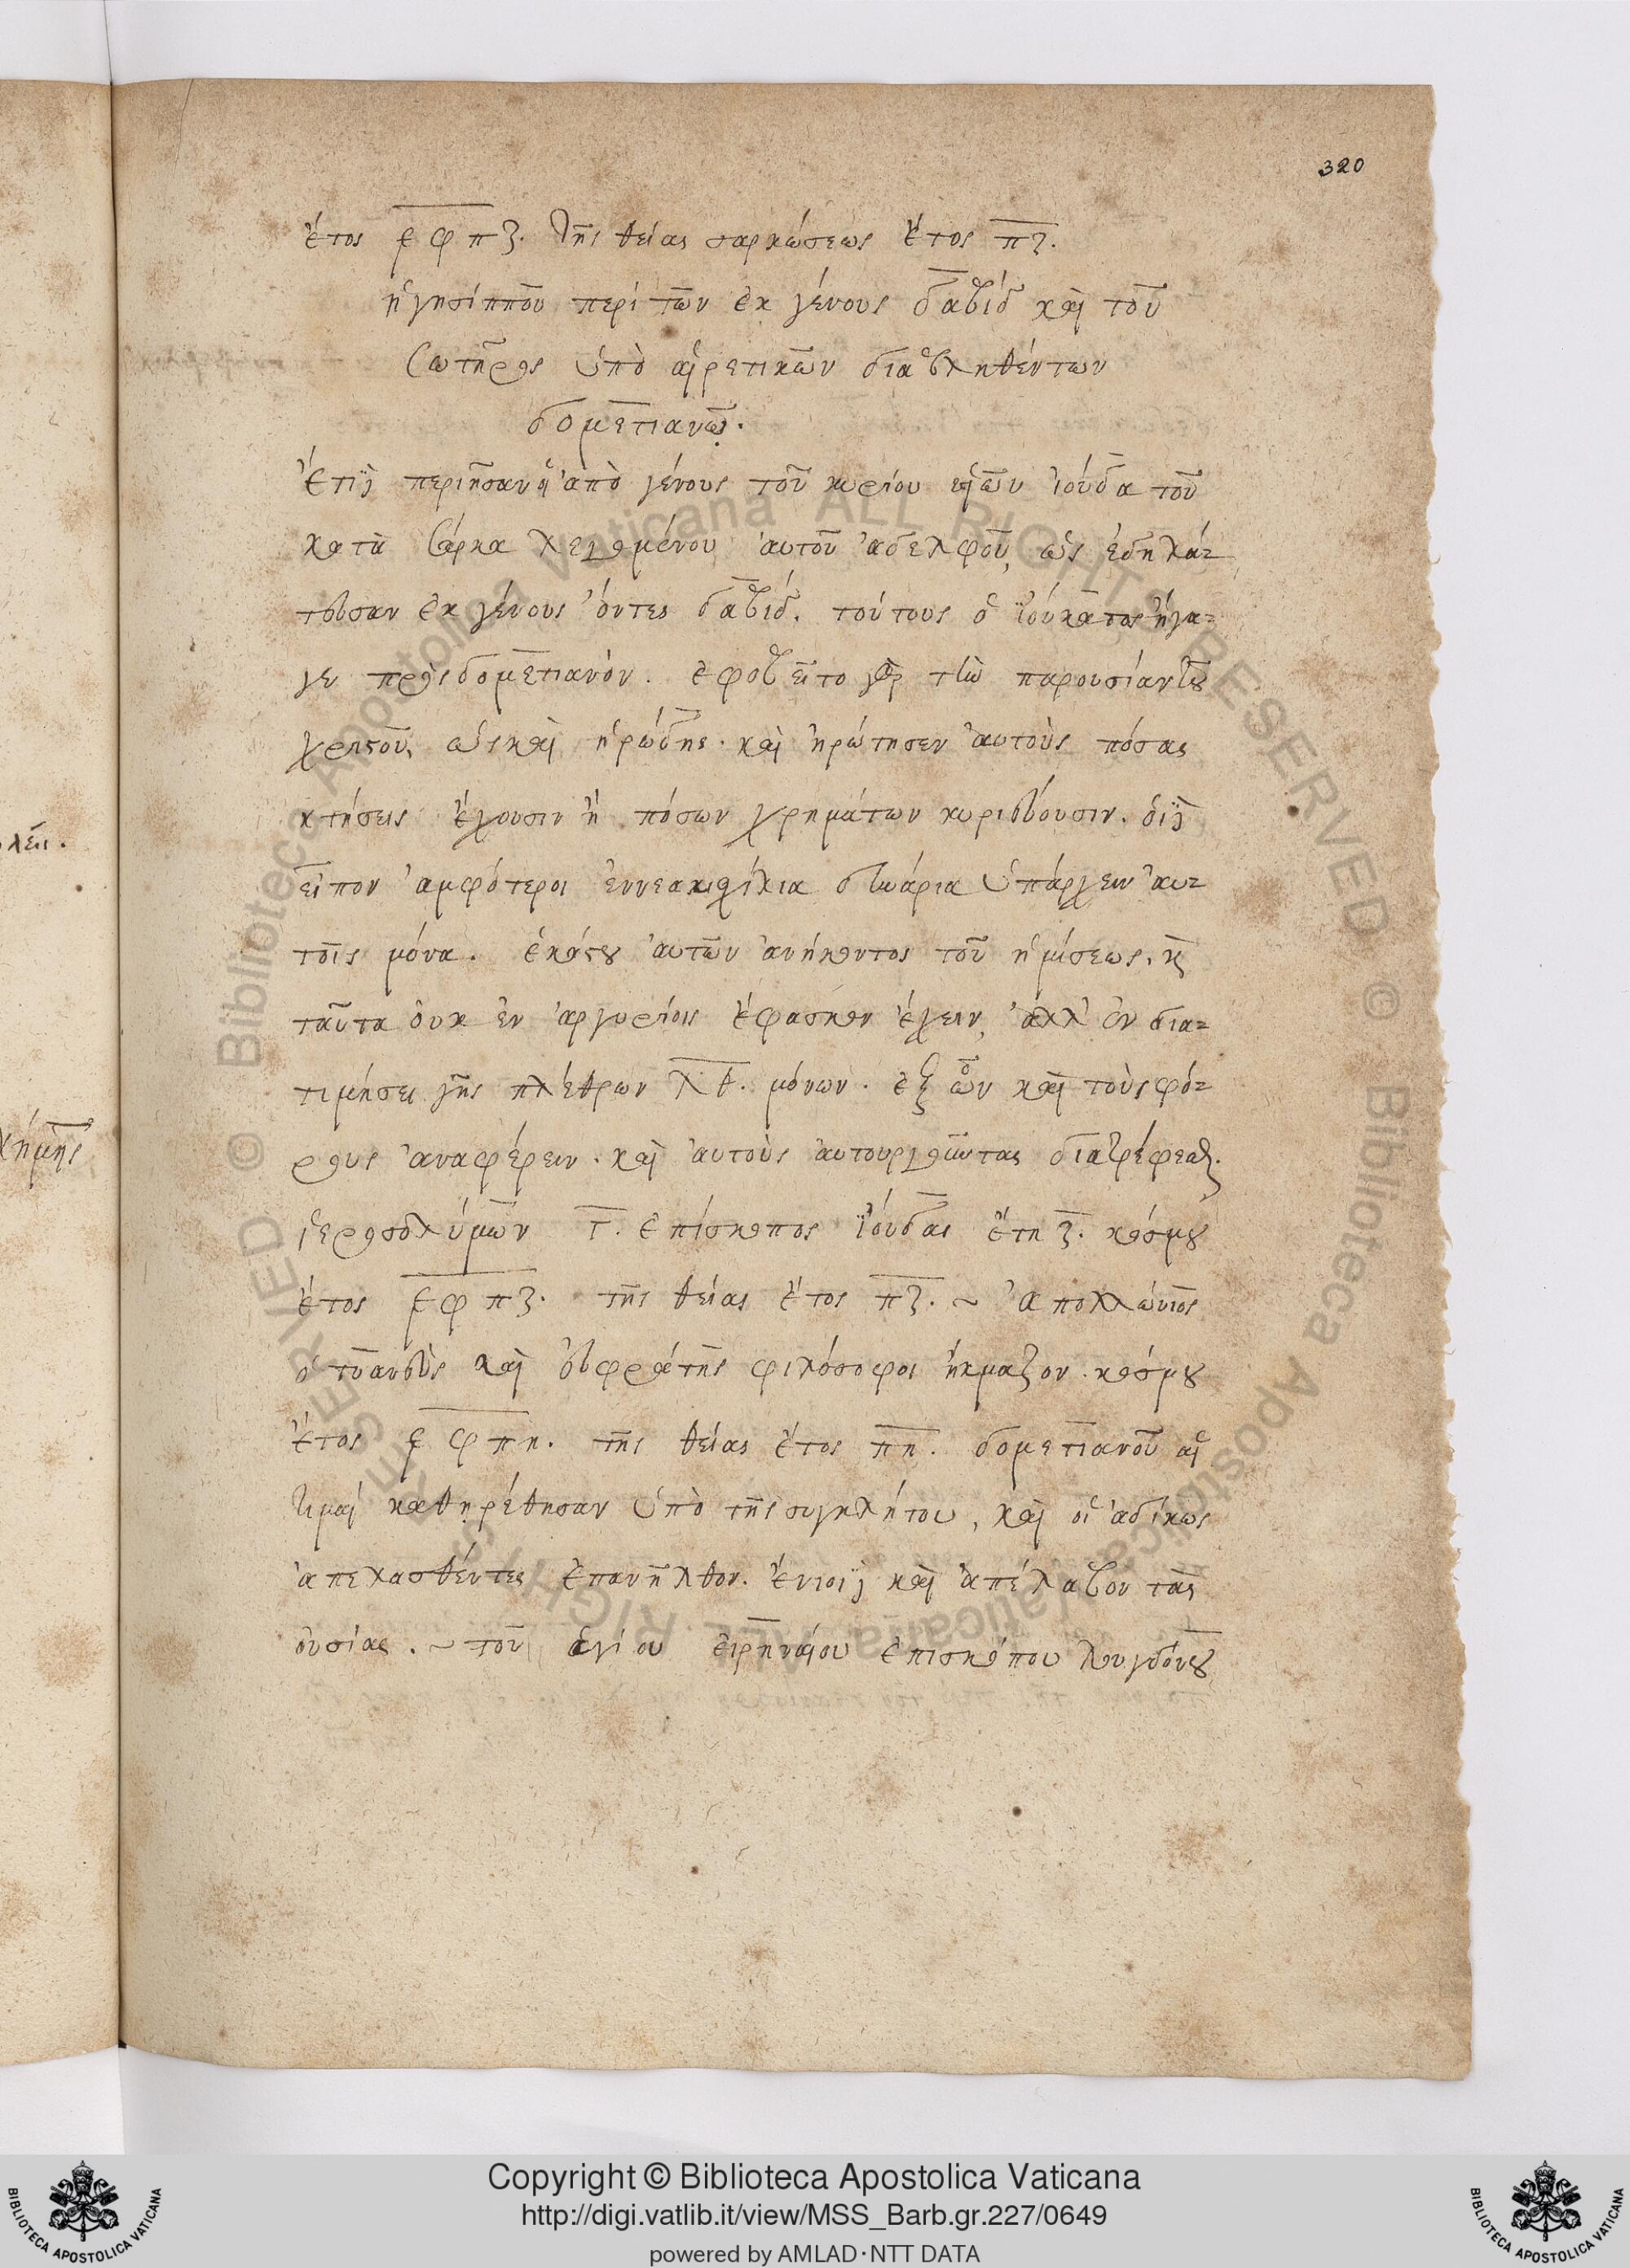 320
ἔτος ͵εφπζ. τῆς θείας σαρκώσεως ἔτος πζ.
ἡγησίππου περὶ τῶν ἐκ γένους δαβὶδ καὶ τοῦ
σωτῆρος ὑπὸ αἱρετικῶν διαβληθέντων
δομετιανῶ.
ἔτι δὲ περιῆσαν οἱ ἀπὸ γένους τοῦ κυρίου ἡμῶν ἰούδα τοῦ
κατὰ σάρκα λεγομένου αὐτοῦ ἀδελφοῦ, ὡς ἐδηλά-
τευσαν ἐκ γένους ὄντες δαβίδ. τούτους ὁ ἰούκατος ἤγα-
γεν πρὸς δομετιανόν. ἐφοβεῖτο γὰρ τὴν παρουσίαν τοῦ
χριστοῦ, ὡς καὶ ἡρώδης. καὶ ἠρώτησεν αὐτοὺς πόσας
κτήσεις ἔχουσιν ἢ πόσων χρημάτων κυριεύουσιν. οἱ δὲ
εἶπον ἀμφότεροι ἐννεακισχίλια δηνάρια ὑπάρχειν αὐ-
τοῖς μόνα. ἑκάστου αὐτῶν ἀνήκοντος τοῦ ἡμίσεως. καὶ
ταῦτα οὐκ ἐν ἀργυρίοις ἔφασκον ἔχειν, ἀλλ' ἐν δια-
τιμήσει γῆς πλέθρων λθ. μόνων. ἐξ ὧν καὶ τοὺς φό-
ρους ἀναφέρειν. καὶ αὐτοὺς αὐτουργοῦντας διατρέφεσθαι.
ἱεροσολύμων γ. ἐπίσκοπος ἰούδας ἔτη ζ. κόσμου
ἔτος ͵εφπζ. τῆς θείας ἔτος πζ. ~ ἀπολλώνιος
ὁ τυανεὺς καὶ εὐφράτης φιλόσοφοι ἤκμαζον. κόσμου
ἔτος ͵εφπη. τῆς θείας ἔτος πη. δομετιανοῦ αἱ
τιμαὶ καθηρέθησαν ὑπὸ τῆς συγκλήτου, καὶ οἱ ἀδίκως
ἀπελασθέντες ἐπανῆλθον. ἔνιοι δὲ καὶ ἀπέλαβον τὰς
οὐσίας. ~ τοῦ ἁγίου εἰρηναίου ἐπισκόπου λουγδόνου
Copyright © Biblioteca Apostolica Vaticana
http://digi.vatlib.it/view/MSS_Barb.gr.227/0649
powered by AMLAD·NTT DATA
BIBLIOTECA APOSTOLICA VATICANA
BIBLIOTECA APOSTOLICA VATICANA